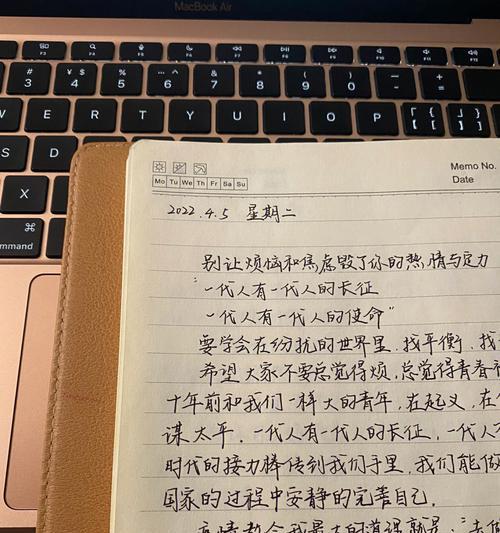 MacBook Air
F3 F4 F5 F6 F7 F8 F9 F10 F11 F12
# 3 ¥ $ 4 % 5 6 & 7 * 8 ( 9 ) 0 + =
W E R T Y U I O P
S D
X
⌘
command
Memo No.
Mo Tu We Th Fr Sa Su
Date
2022.4.5 星期二
别让烦恼和焦虑毁了你的热情与定力
"一代人有一代人的长征
一代人有一代人的使命"
要学会在纷扰的世界里,找平衡,找
希望大家不要总觉得烦,总觉得青春
十年前和我们一样大的青年,在起义,在
谋太平.一代人有一代人的长征,一代人
时代的接力棒传到我们手里,我们能做
国家的过程中安静的完善自己.
疫情教会我最大的道理就是:"去做